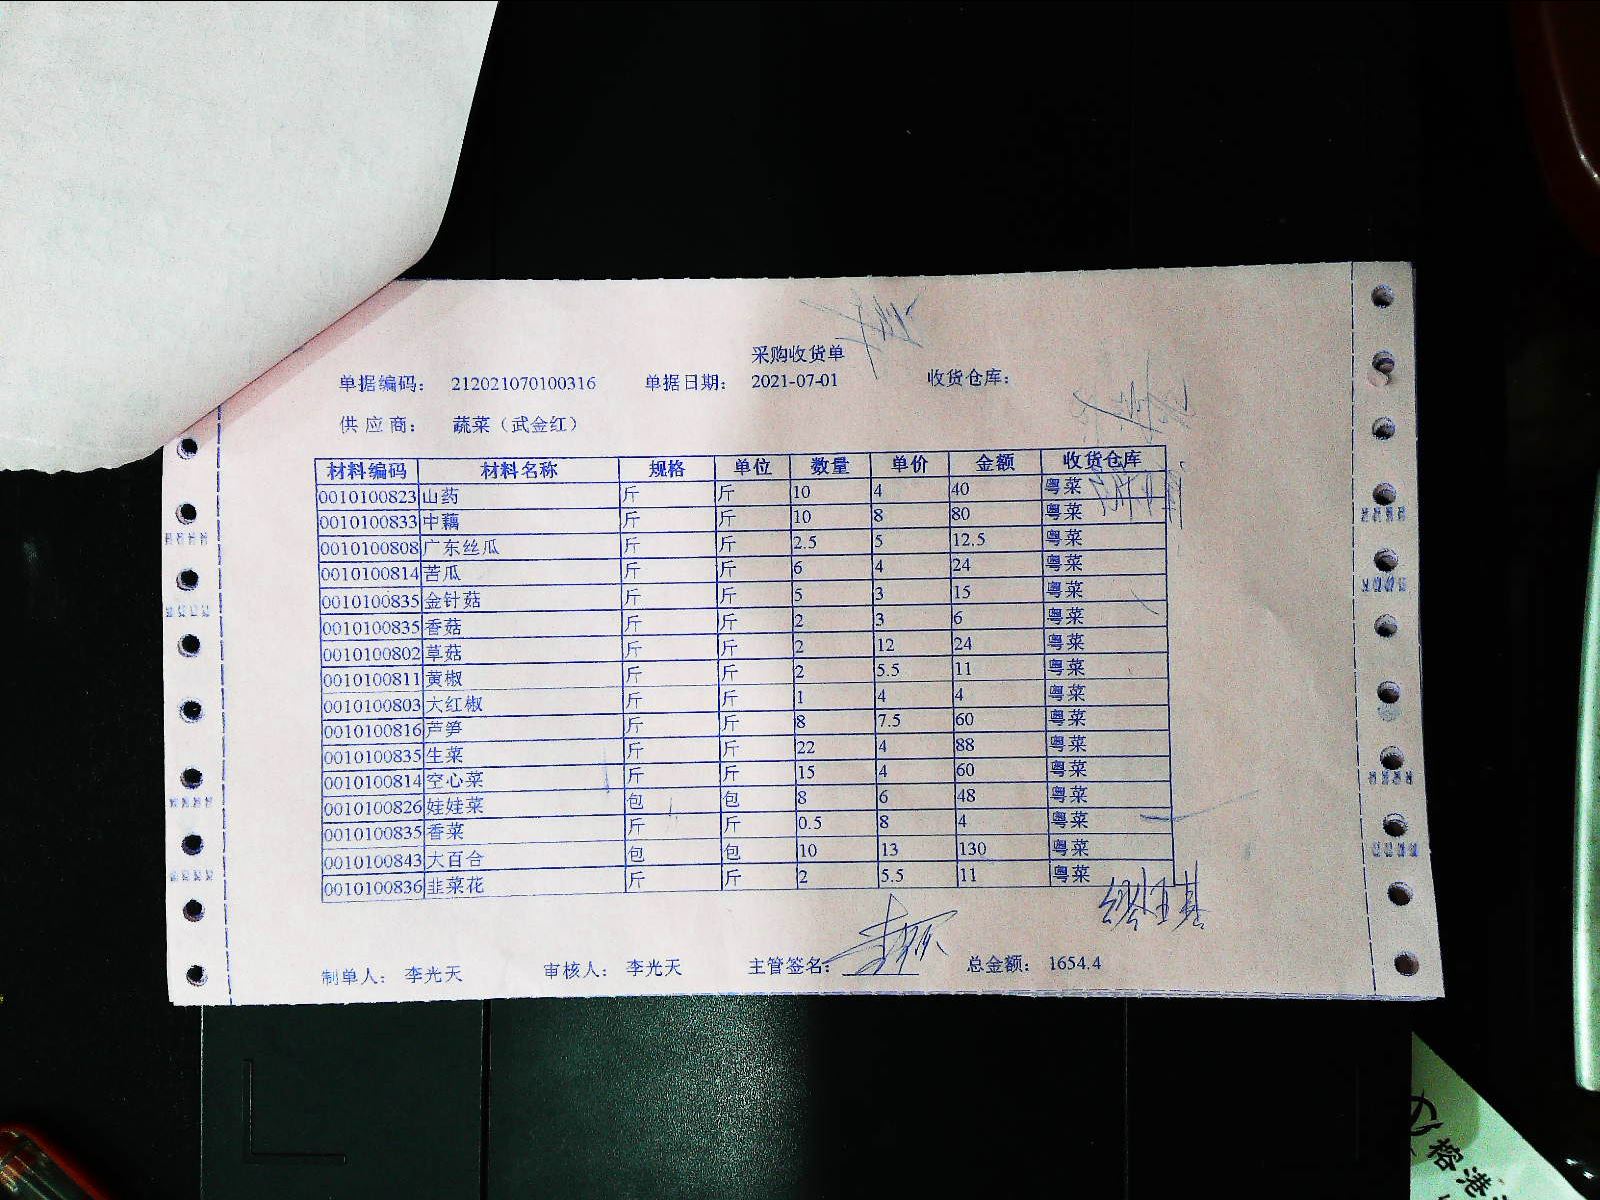 采购收货单
单据编码： 212021070100316 单据日期： 2021-07-01 收货仓库：
供 应 商： 蔬菜（武金红）
材料编码 材料名称 规格 单位 数量 单价 金额 收货仓库
0010100823 山药 斤 斤 10 4 40 粤菜
0010100833 中藕 斤 斤 10 8 80 粤菜
0010100808 广东丝瓜 斤 斤 2.5 5 12.5 粤菜
0010100814 苦瓜 斤 斤 6 4 24 粤菜
0010100835 金针菇 斤 斤 5 3 15 粤菜
0010100835 香菇 斤 斤 2 3 6 粤菜
0010100802 草菇 斤 斤 2 12 24 粤菜
0010100811 黄椒 斤 斤 2 5.5 11 粤菜
0010100803 大红椒 斤 斤 1 4 4 粤菜
0010100816 芦笋 斤 斤 8 7.5 60 粤菜
0010100835 生菜 斤 斤 22 4 88 粤菜
0010100814 空心菜 斤 斤 15 4 60 粤菜
0010100826 娃娃菜 包 包 8 6 48 粤菜
0010100835 香菜 斤 斤 0.5 8 4 粤菜
0010100843 大百合 包 包 10 13 130 粤菜
0010100836 韭菜花 斤 斤 2 5.5 11 粤菜
制单人： 李光天 审核人： 李光天 主管签名： 总金额： 1654.4
榕港